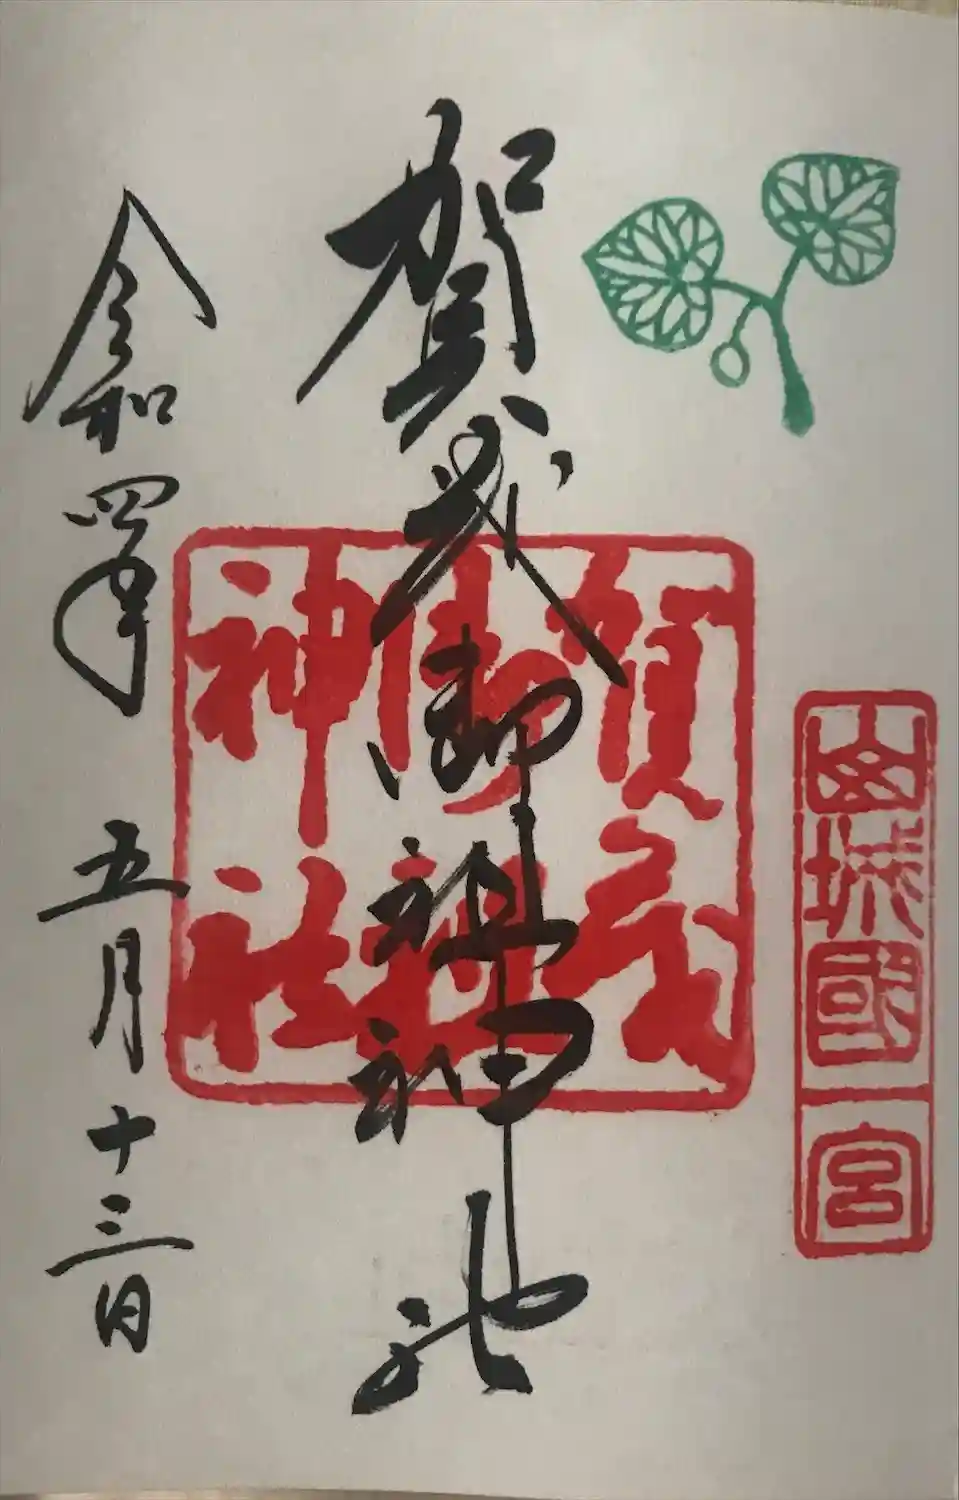 山城國一宮
賀茂御祖神社
賀茂御祖神社
令和四年 五月 十三日